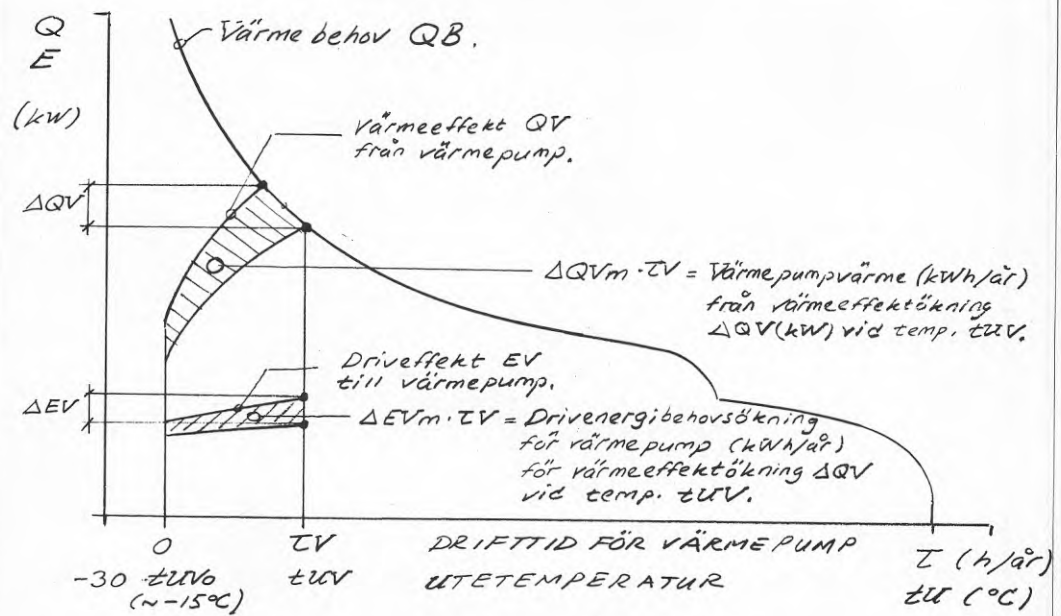 Q
E
(kW)
Värmebehov QB.
Värmeeffekt QV
från värmepump.
ΔQV
ΔQVm·τV = Värmepumpvärme (kWh/år)
från värmeeffektökning
ΔQV(kW) vid temp. tUV.
Driveffekt EV
till värmepump.
ΔEV
ΔEVm·τV = Drivenergibehovsökning
för värmepump (kWh/år)
för värmeeffektökning ΔQV
vid temp. tUV.
0
τV
DRIFTTID FÖR VÄRMEPUMP
τ (h/år)
-30
tUVo
tUV
UTETEMPERATUR
tU (°C)
(~-15°C)